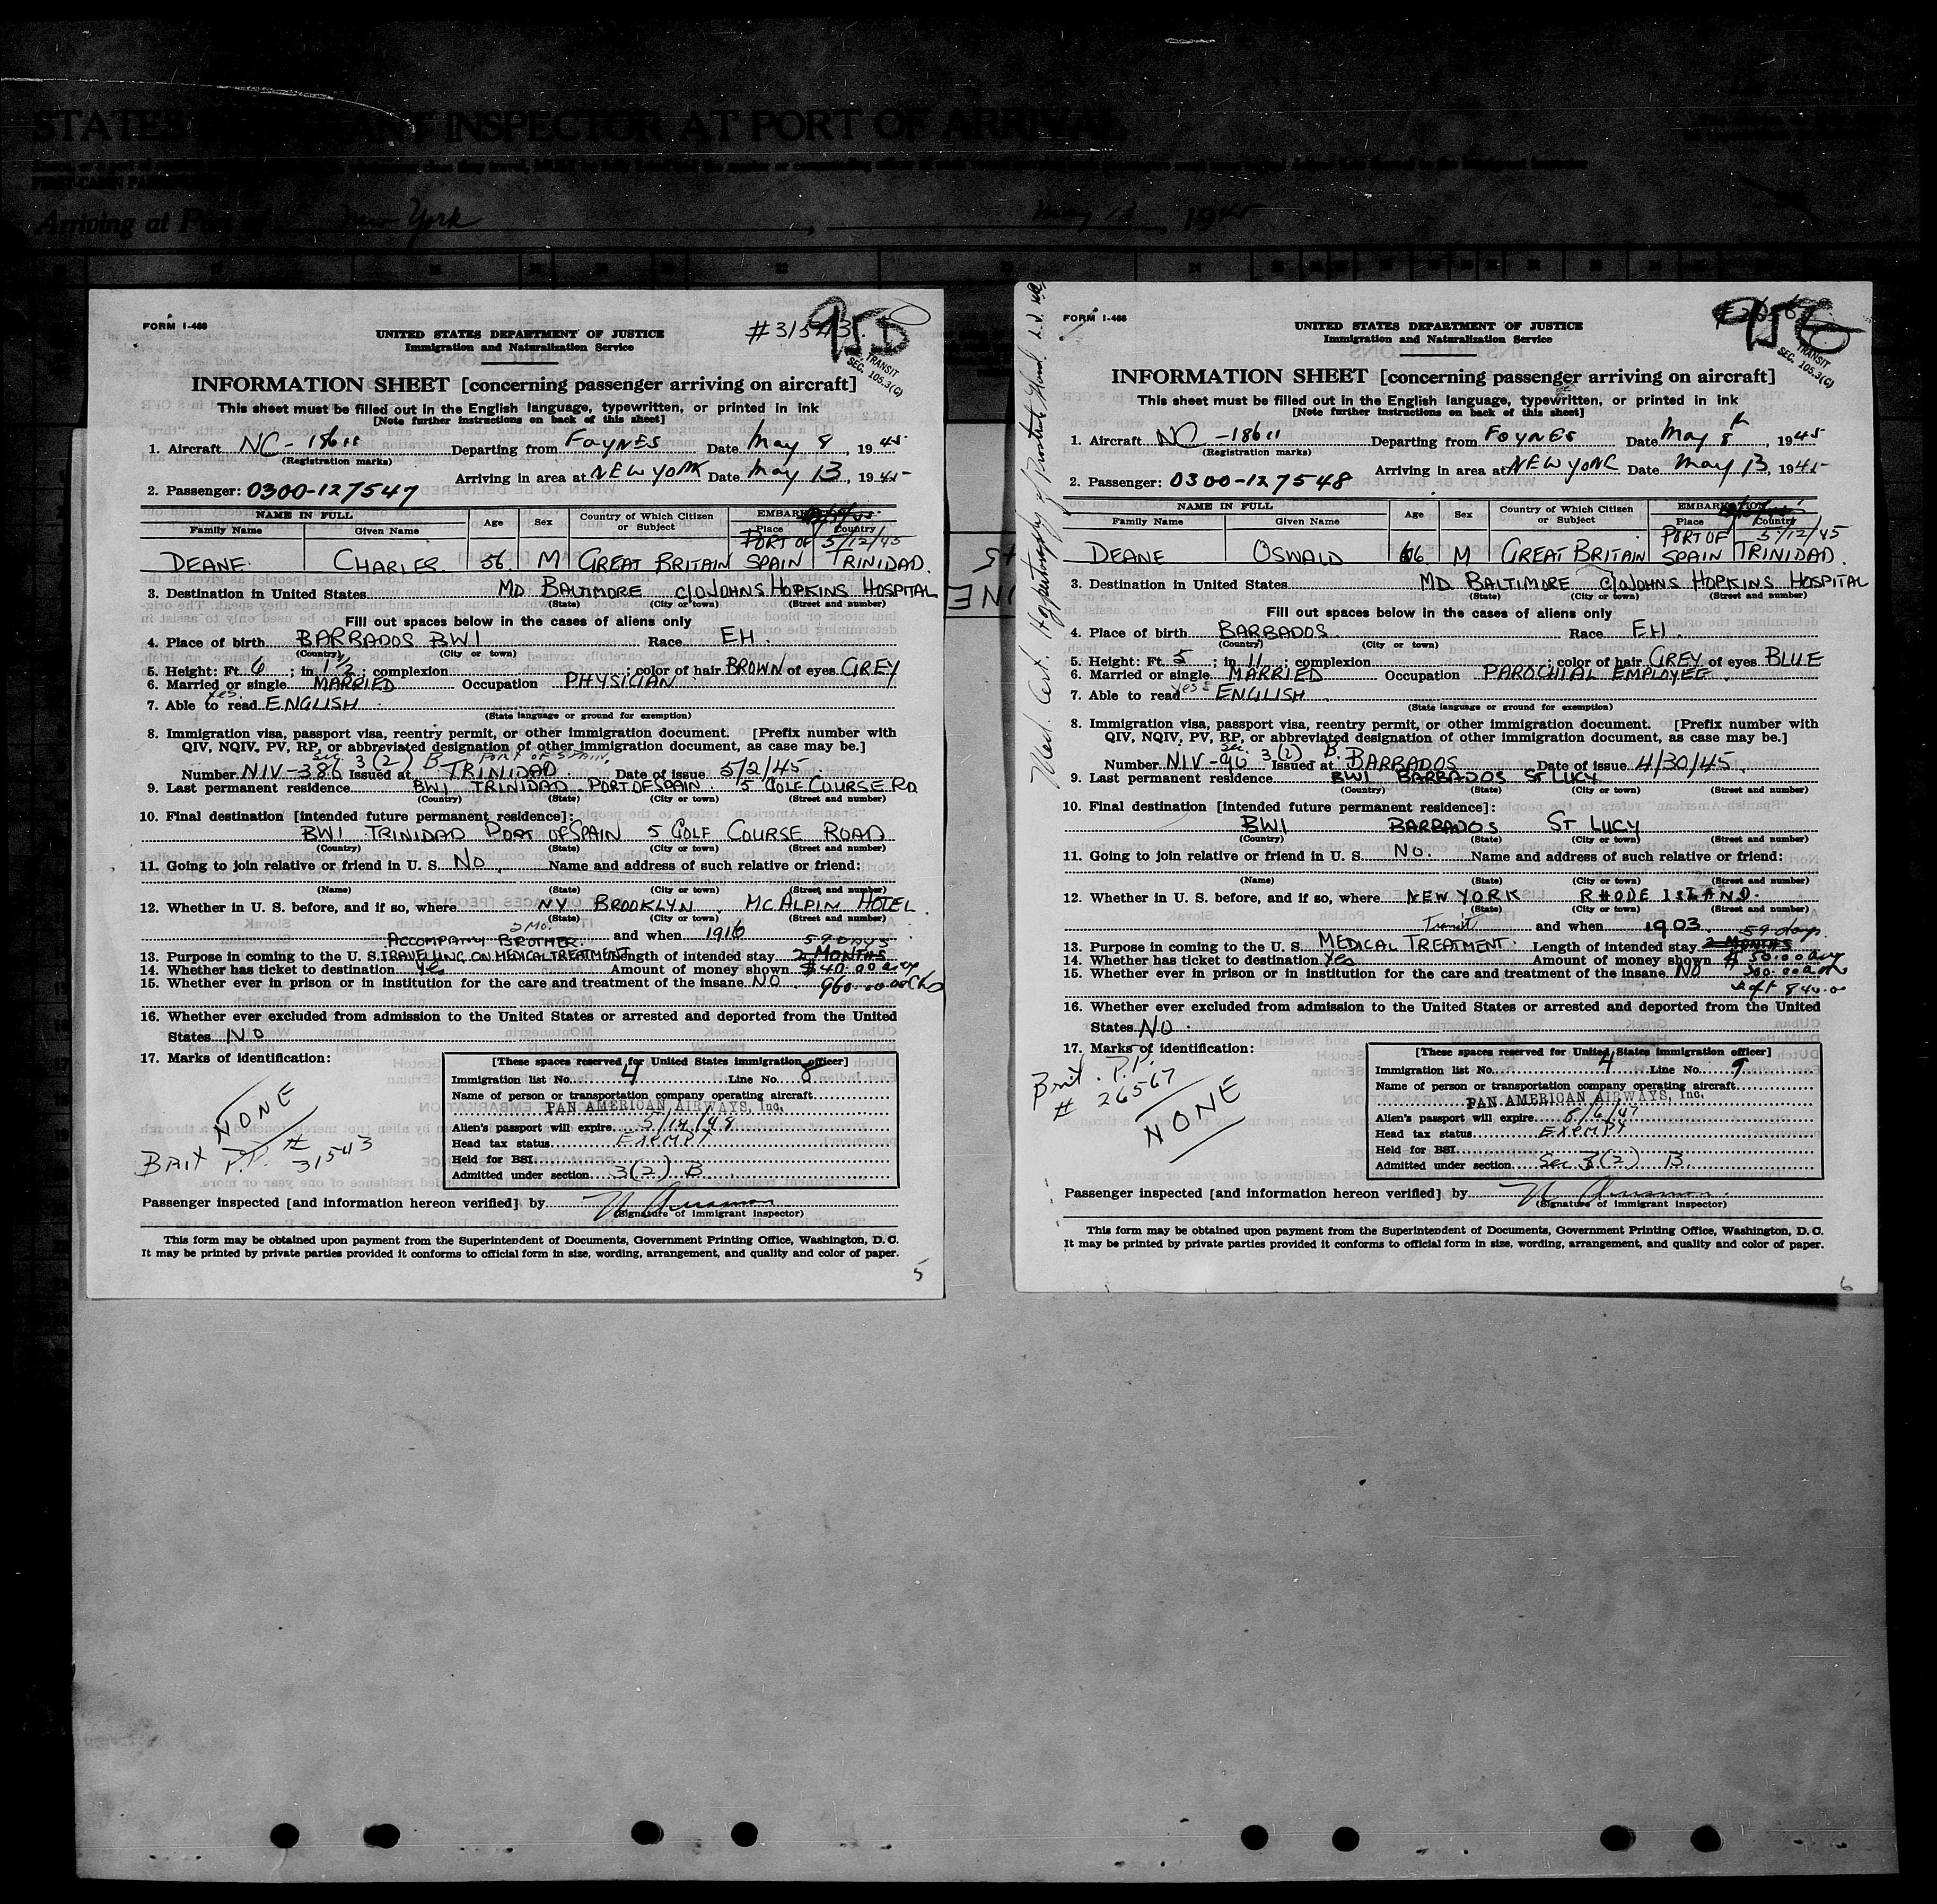 STATES IMMIGRANT INSPECTOR AT PORT OF ARRIVAL
Arriving at Port of New York, May 13, 1945
FORM I-466
#31543
95D
TRANSIT
SEC. 105.3(C)
UNITED STATES DEPARTMENT OF JUSTICE
Immigration and Naturalization Service
INFORMATION SHEET [concerning passenger arriving on aircraft]
This sheet must be filled out in the English language, typewritten, or printed in ink
[Note further instructions on back of this sheet]
1. Aircraft NC-18611 Departing from FOYNES Date May 8, 1945
(Registration marks)
Arriving in area at NEW YORK Date May 13, 1945
2. Passenger: 0300-127547
NAME IN FULL Age Sex Country of Which Citizen or Subject EMBARKATION
Family Name Given Name Place Country
PORT OF 5/12/45
DEANE CHARLES 56 M GREAT BRITAIN SPAIN TRINIDAD.
3. Destination in United States MD BALTIMORE C/O JOHNS HOPKINS HOSPITAL
(State) (City or town) (Street and number)
Fill out spaces below in the cases of aliens only
4. Place of birth BARBADOS BWI Race EH.
(Country) (City or town)
5. Height: Ft. 6; in 1 1/2; complexion ; color of hair BROWN of eyes GREY
6. Married or single MARRIED Occupation PHYSICIAN
7. Able to read yes. ENGLISH
(State language or ground for exemption)
8. Immigration visa, passport visa, reentry permit, or other immigration document. [Prefix number with
QIV, NQIV, PV, RP, or abbreviated designation of other immigration document, as case may be.]
sec 3(2) B PORT OF SPAIN,
Number NIV-386 Issued at TRINIDAD. Date of issue 5/2/45
9. Last permanent residence BWI TRINIDAD PORT OF SPAIN. 5 GOLF COURSE RD
(Country) (State) (City or town) (Street and number)
10. Final destination [intended future permanent residence]:
BWI TRINIDAD PORT OF SPAIN 5 GOLF COURSE ROAD
(Country) (State) (City or town) (Street and number)
11. Going to join relative or friend in U. S. No. Name and address of such relative or friend:
(Name) (State) (City or town) (Street and number)
12. Whether in U. S. before, and if so, where NY BROOKLYN MCALPIN HOTEL
(State) (City or town) (Street and number)
2 Mo. and when 1916
ACCOMPANY BROTHER. 59 DAYS
13. Purpose in coming to the U. S. TRAVELLING ON MEDICAL TREATMENT Length of intended stay 2 MONTHS
14. Whether has ticket to destination yes Amount of money shown $40.00
15. Whether ever in prison or in institution for the care and treatment of the insane NO. 960.00
16. Whether ever excluded from admission to the United States or arrested and deported from the United
States NO
17. Marks of identification:
NONE
Brit P.P. #
31543
[These spaces reserved for United States immigration officer]
Immigration list No. 4 Line No. 8
Name of person or transportation company operating aircraft
PAN AMERICAN AIRWAYS, Inc.
Alien's passport will expire
Head tax status EXEMPT
Held for BSI
Admitted under section 3(2) B
Passenger inspected [and information hereon verified] by
(Signature of immigrant inspector)
This form may be obtained upon payment from the Superintendent of Documents, Government Printing Office, Washington, D. C.
It may be printed by private parties provided it conforms to official form in size, wording, arrangement, and quality and color of paper.
5
FORM I-466
95E
TRANSIT
SEC. 105.3(C)
Med. Cert. Hypertrophy of Prostate Gland
UNITED STATES DEPARTMENT OF JUSTICE
Immigration and Naturalization Service
INFORMATION SHEET [concerning passenger arriving on aircraft]
This sheet must be filled out in the English language, typewritten, or printed in ink
[Note further instructions on back of this sheet]
1. Aircraft NC-18611 Departing from FOYNES Date May 8th, 1945
(Registration marks)
Arriving in area at NEW YORK Date May 13, 1945
2. Passenger: 0300-127548
NAME IN FULL Age Sex Country of Which Citizen or Subject EMBARKATION
Family Name Given Name Place Country
PORT OF 5/12/45
DEANE OSWALD 66 M GREAT BRITAIN SPAIN TRINIDAD.
3. Destination in United States MD BALTIMORE C/O JOHNS HOPKINS HOSPITAL
(State) (City or town) (Street and number)
Fill out spaces below in the cases of aliens only
4. Place of birth BARBADOS Race EH.
(Country) (City or town)
5. Height: Ft. 5; in 11; complexion ; color of hair GREY of eyes BLUE
6. Married or single MARRIED Occupation PAROCHIAL EMPLOYEE.
7. Able to read yes ENGLISH
(State language or ground for exemption)
8. Immigration visa, passport visa, reentry permit, or other immigration document. [Prefix number with
QIV, NQIV, PV, RP, or abbreviated designation of other immigration document, as case may be.]
sec. 3(2) B.
Number NIV-90 Issued at BARBADOS Date of issue 4/30/45
9. Last permanent residence BWI BARBADOS ST LUCY
(Country) (State) (City or town) (Street and number)
10. Final destination [intended future permanent residence]:
BWI BARBADOS ST LUCY
(Country) (State) (City or town) (Street and number)
11. Going to join relative or friend in U. S. No. Name and address of such relative or friend:
(Name) (State) (City or town) (Street and number)
12. Whether in U. S. before, and if so, where NEW YORK RHODE ISLAND.
(State) (City or town) (Street and number)
Transit and when 1903.
59 days
13. Purpose in coming to the U. S. MEDICAL TREATMENT. Length of intended stay 2 MONTHS
14. Whether has ticket to destination Yes Amount of money shown $ 50.00
15. Whether ever in prison or in institution for the care and treatment of the insane NO
16. Whether ever excluded from admission to the United States or arrested and deported from the United
States NO.
17. Marks of identification:
Brit. P.P.
# 26567
NONE
[These spaces reserved for United States immigration officer]
Immigration list No. 4 Line No. 9
Name of person or transportation company operating aircraft
PAN AMERICAN AIRWAYS, Inc.
Alien's passport will expire 8/6/47
Head tax status EXEMPT
Held for BSI
Admitted under section Sec. 3(2) B.
Passenger inspected [and information hereon verified] by
(Signature of immigrant inspector)
This form may be obtained upon payment from the Superintendent of Documents, Government Printing Office, Washington, D. C.
It may be printed by private parties provided it conforms to official form in size, wording, arrangement, and quality and color of paper.
6